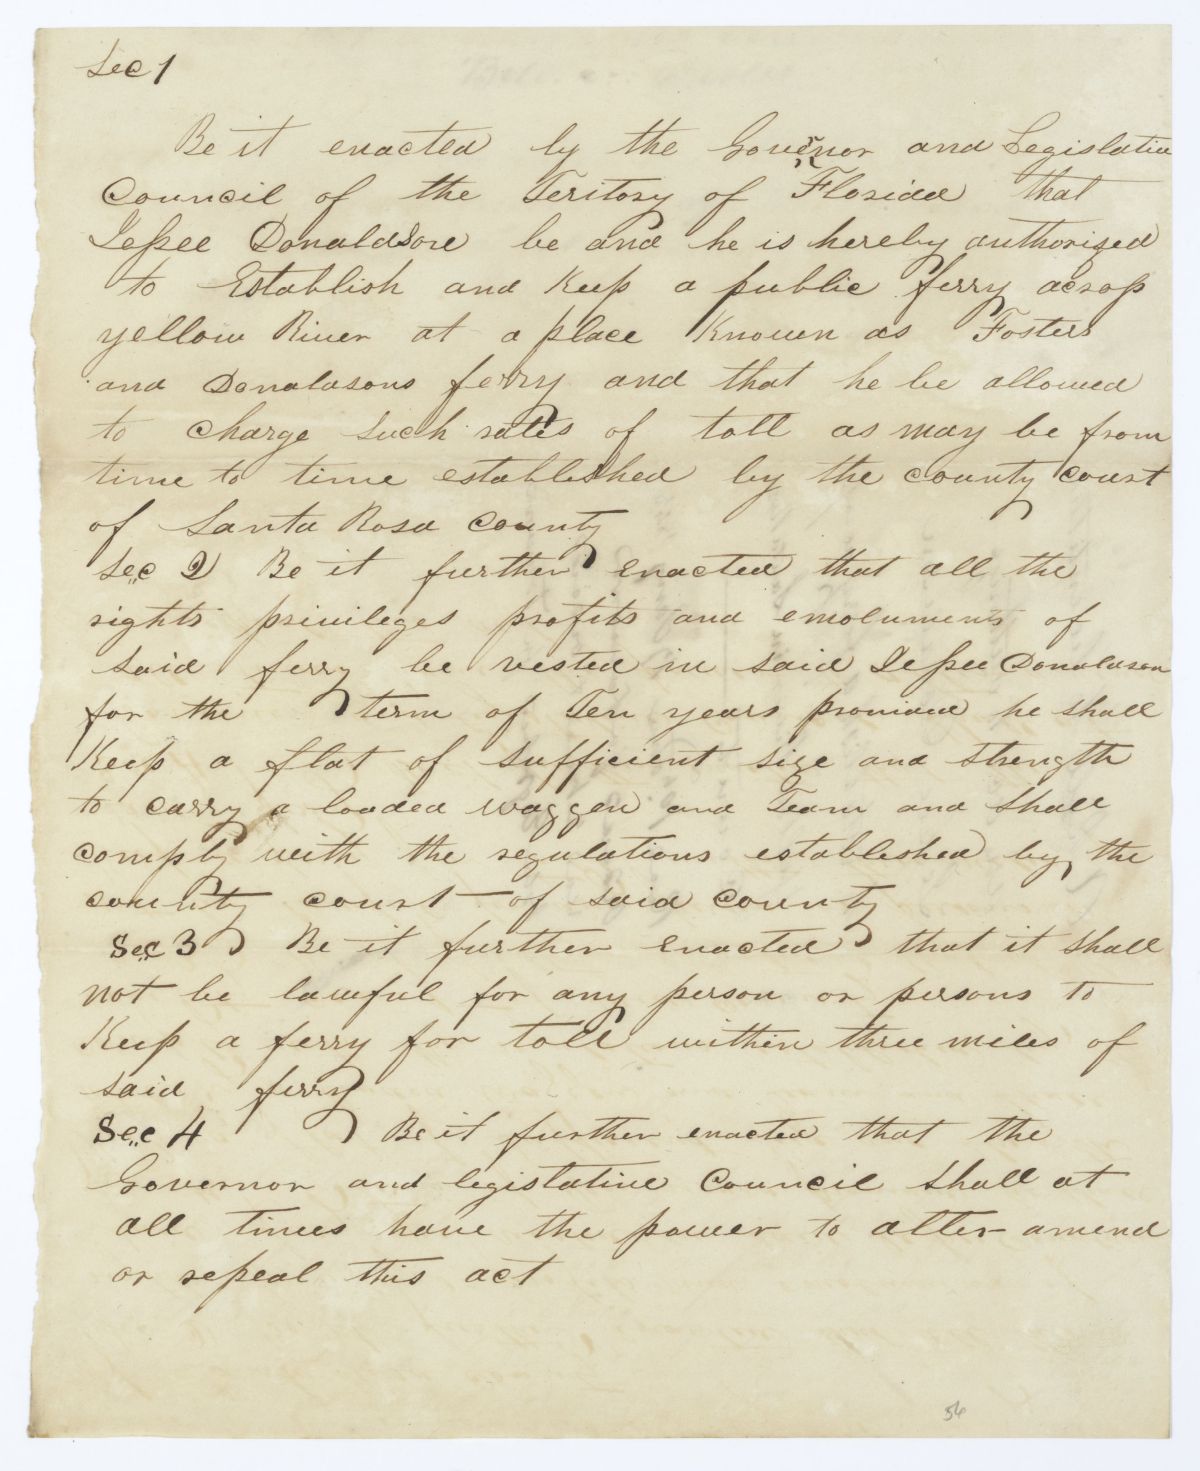 Sec 1
Be it enacted by the Governor and Legislative
Council of the Teritory of Florida that
Jessee Donaldson be and he is hereby authorized
to Establish and Keep a public ferry acrop
yellow River at a place Known as Fosters
and Donaldsons ferry and that he be allowed
to charge such rates of toll as may be from
time to time established by the county court
of Santa Rosa County
Sec 2 Be it further enacted that all the
rights privileges profits and emoluments of
said ferry be vested in said Jessee Donaldson
for the term of Ten years provided he shall
Keep a flat of sufficient size and strength
to carry a loaded waggen and Team and shall
comply with the regulations established by the
county court of said county
Sec 3 Be it further enacted that it shall
not be lawful for any person or persons to
Keep a ferry for toll within three miles of
said ferry
Sec 4 Be it further enacted that the
Governor and legislative Council shall at
all times have the power to alter amend
or repeal this act
56